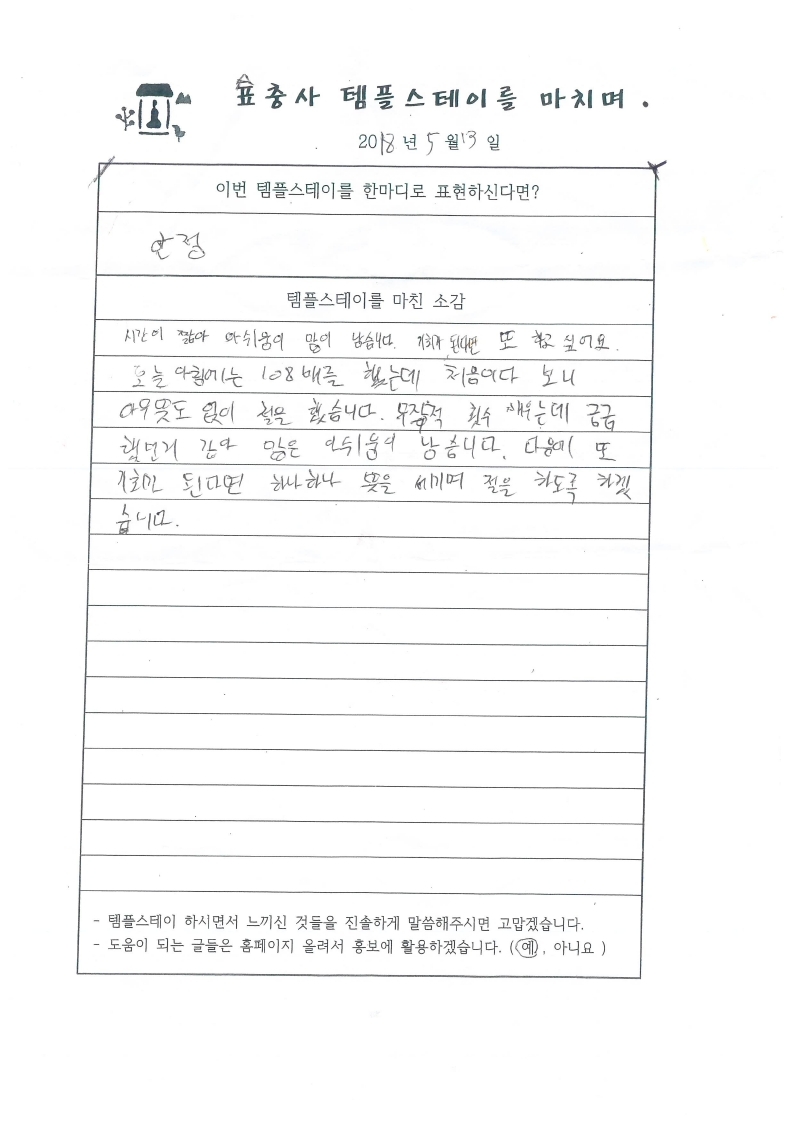 표충사 템플스테이를 마치며.
2018년 5월 13일
이번 템플스테이를 한마디로 표현하신다면?
안정
템플스테이를 마친 소감
시간이 짧아 아쉬움이 많이 남습니다. 기회가 된다면 또 하고 싶어요.
오늘 아침에는 108배를 했는데 처음이다 보니
아무 뜻도 없이 절을 했습니다. 무작정 횟수 채우는데 급급
했던거 같아 많은 아쉬움이 남습니다. 다음에 또
기회가 된다면 하나하나 뜻을 새기며 절을 하도록 하겠
습니다.
- 템플스테이 하시면서 느끼신 것들을 진솔하게 말씀해주시면 고맙겠습니다.
- 도움이 되는 글들은 홈페이지 올려서 홍보에 활용하겠습니다. (예, 아니요 )